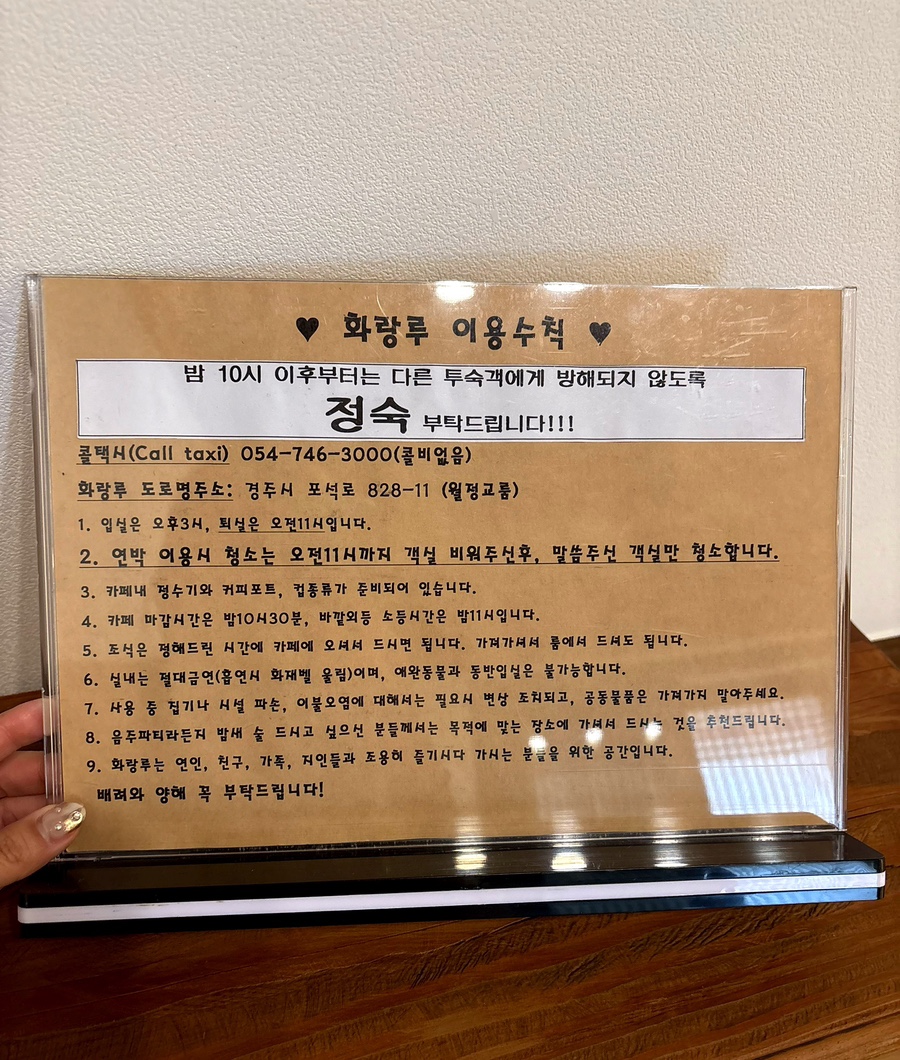 ♥ 화랑루 이용수칙 ♥
밤 10시 이후부터는 다른 투숙객에게 방해되지 않도록
정숙 부탁드립니다!!!
콜택시(Call taxi) 054-746-3000(콜비없음)
화랑루 도로명주소: 경주시 포석로 828-11 (월정교룸)
1. 입실은 오후3시, 퇴실은 오전11시입니다.
2. 연박 이용시 청소는 오전11시까지 객실 비워주신후, 말씀주신 객실만 청소합니다.
3. 카페내 정수기와 커피포트, 컵종류가 준비되어 있습니다.
4. 카페 마감시간은 밤10시30분, 바깥외등 소등시간은 밤11시입니다.
5. 조식은 정해드린 시간에 카페에 오셔서 드시면 됩니다. 가져가셔서 룸에서 드셔도 됩니다.
6. 실내는 절대금연(흡연시 화재벨 울림)이며, 애완동물과 동반입실은 불가능합니다.
7. 사용 중 집기나 시설 파손, 이불오염에 대해서는 필요시 변상 조치되고, 공동물품은 가져가지 말아주세요.
8. 음주파티라든지 밤새 술 드시고 싶으신 분들께서는 목적에 맞는 장소에 가셔서 드시는 것을 추천드립니다.
9. 화랑루는 연인, 친구, 가족, 지인들과 조용히 즐기시다 가시는 분들을 위한 공간입니다.
배려와 양해 꼭 부탁드립니다!